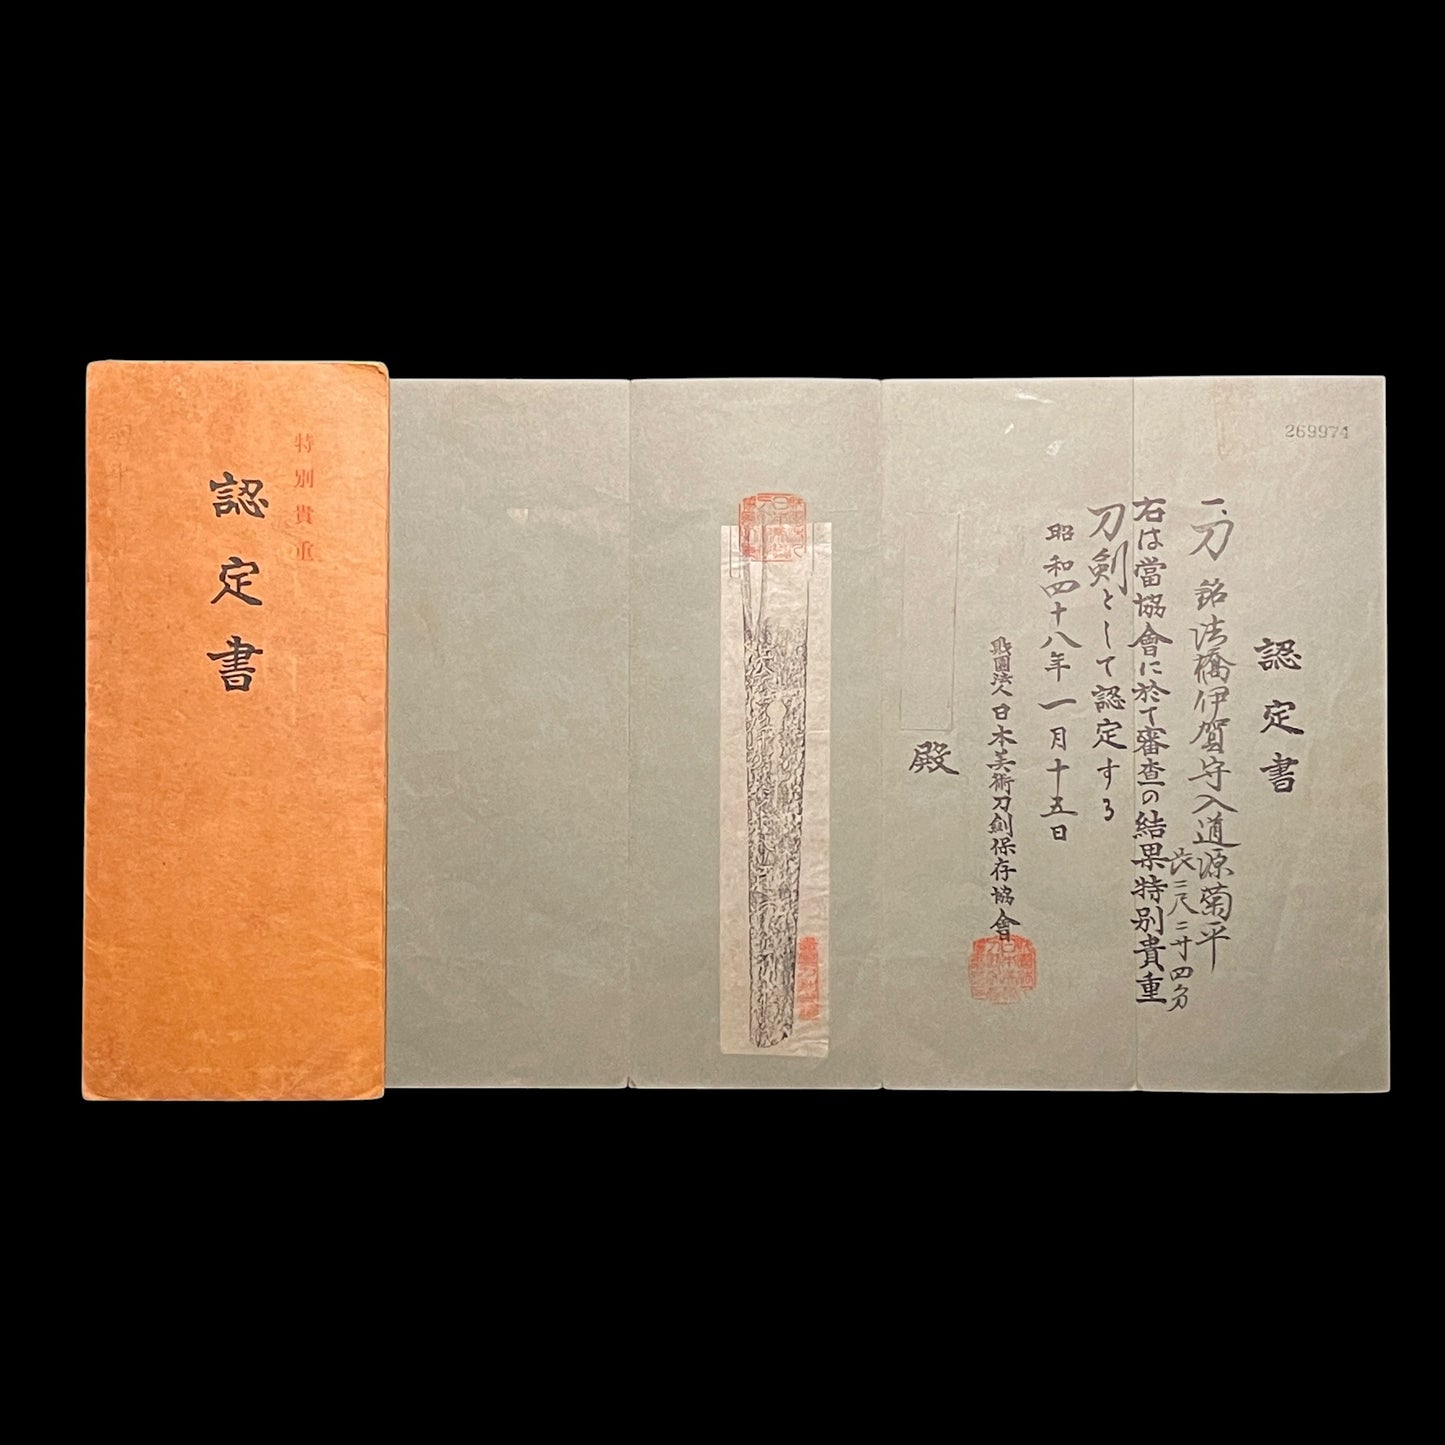 269974
認定書
一、刀 銘 法橋伊賀守入道源菊平
長二尺二寸四分
右は當協會に於て審査の結果特別貴重
刀剣として認定する
昭和四十八年一月十五日
財團法人日本美術刀剣保存協會
殿
特別貴重
認定書